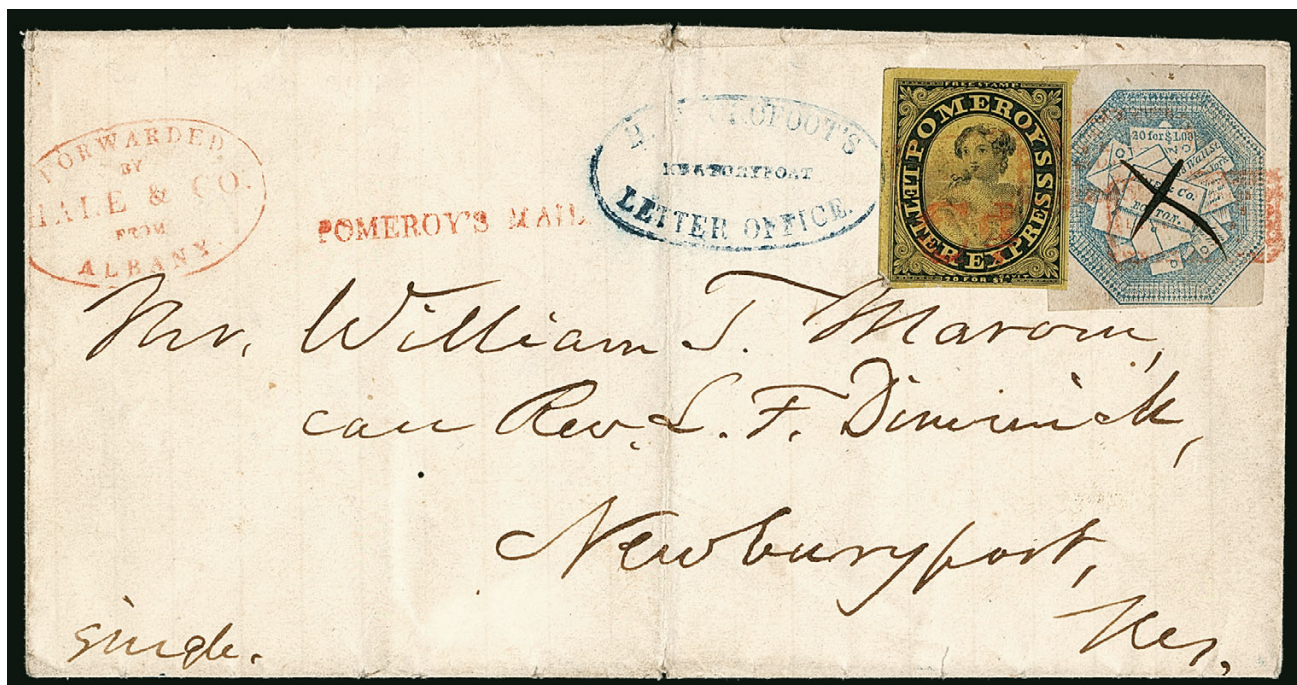 FORWARDED
BY
HALE & CO.
FROM
ALBANY.
POMEROY'S MAIL
LETTER OFFICE.
FREE STAMP
POMEROY'S
LETTER EXPRESS
20 FOR $1
20 for $1.00
BOSTON
Mr. William T.
care Rev. L. F. Dimmick,
Newburyport,
single.